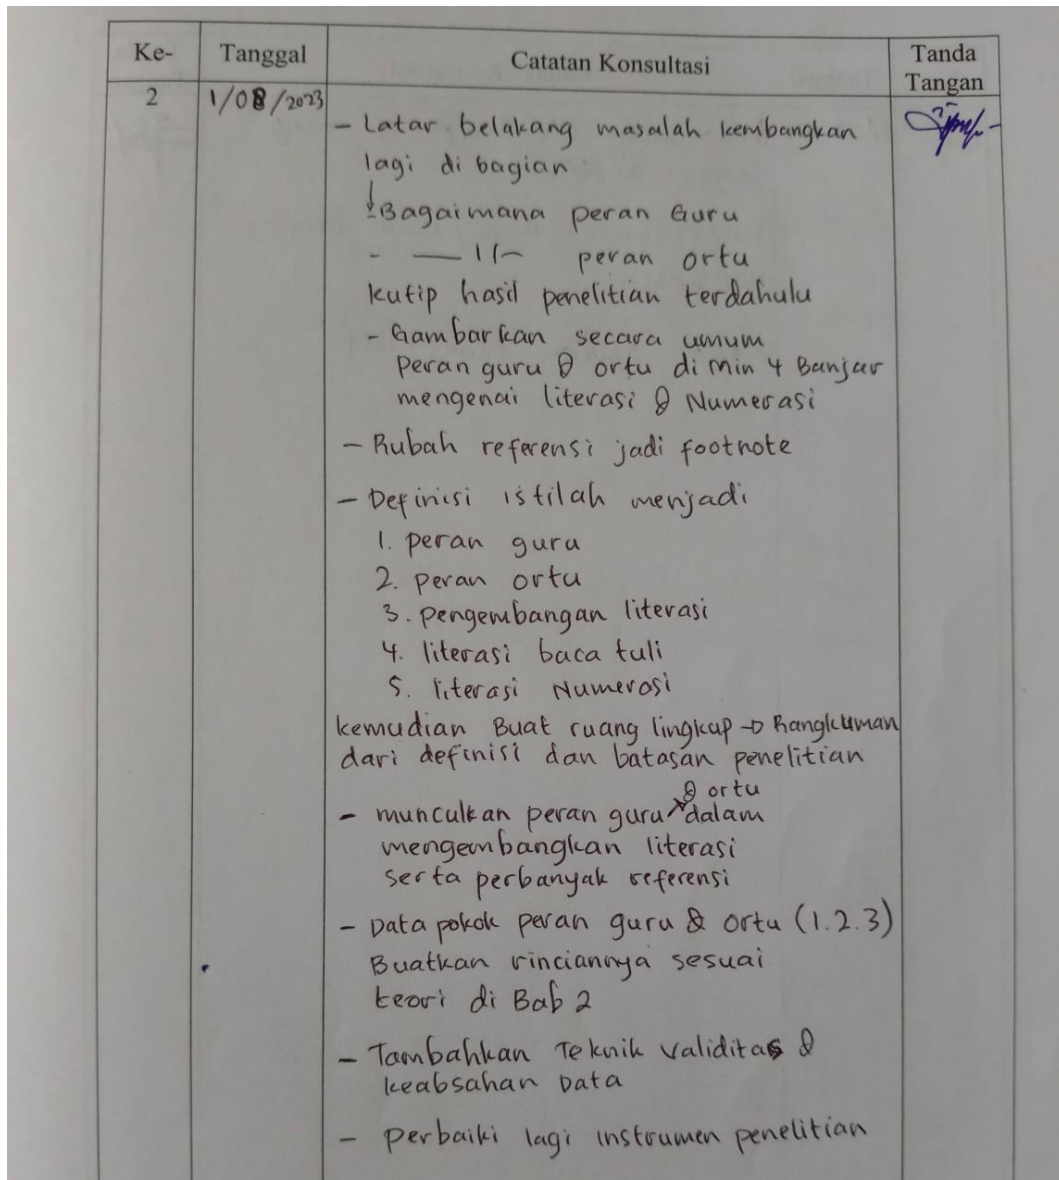 Ke-
Tanggal
Catatan Konsultasi
Tanda
Tangan
2
1/08/2023
- Latar belakang masalah kembangkan
lagi di bagian
Bagaimana peran Guru
- — 11 — peran ortu
kutip hasil penelitian terdahulu
- Gambarkan secara umum
peran guru & ortu di min 4 Banjar
mengenai literasi & Numerasi
- Rubah referensi jadi footnote
- Definisi istilah menjadi
1. peran guru
2. peran ortu
3. pengembangan literasi
4. literasi baca tuli
5. literasi Numerasi
kemudian Buat ruang lingkup → Rangkuman
dari definisi dan batasan penelitian
& ortu
- munculkan peran guru dalam
mengembangkan literasi
serta perbanyak referensi
- Data pokok peran guru & ortu (1.2.3)
Buatkan rinciannya sesuai
teori di Bab 2
- Tambahkan Teknik validitas &
keabsahan Data
- perbaiki lagi instrumen penelitian